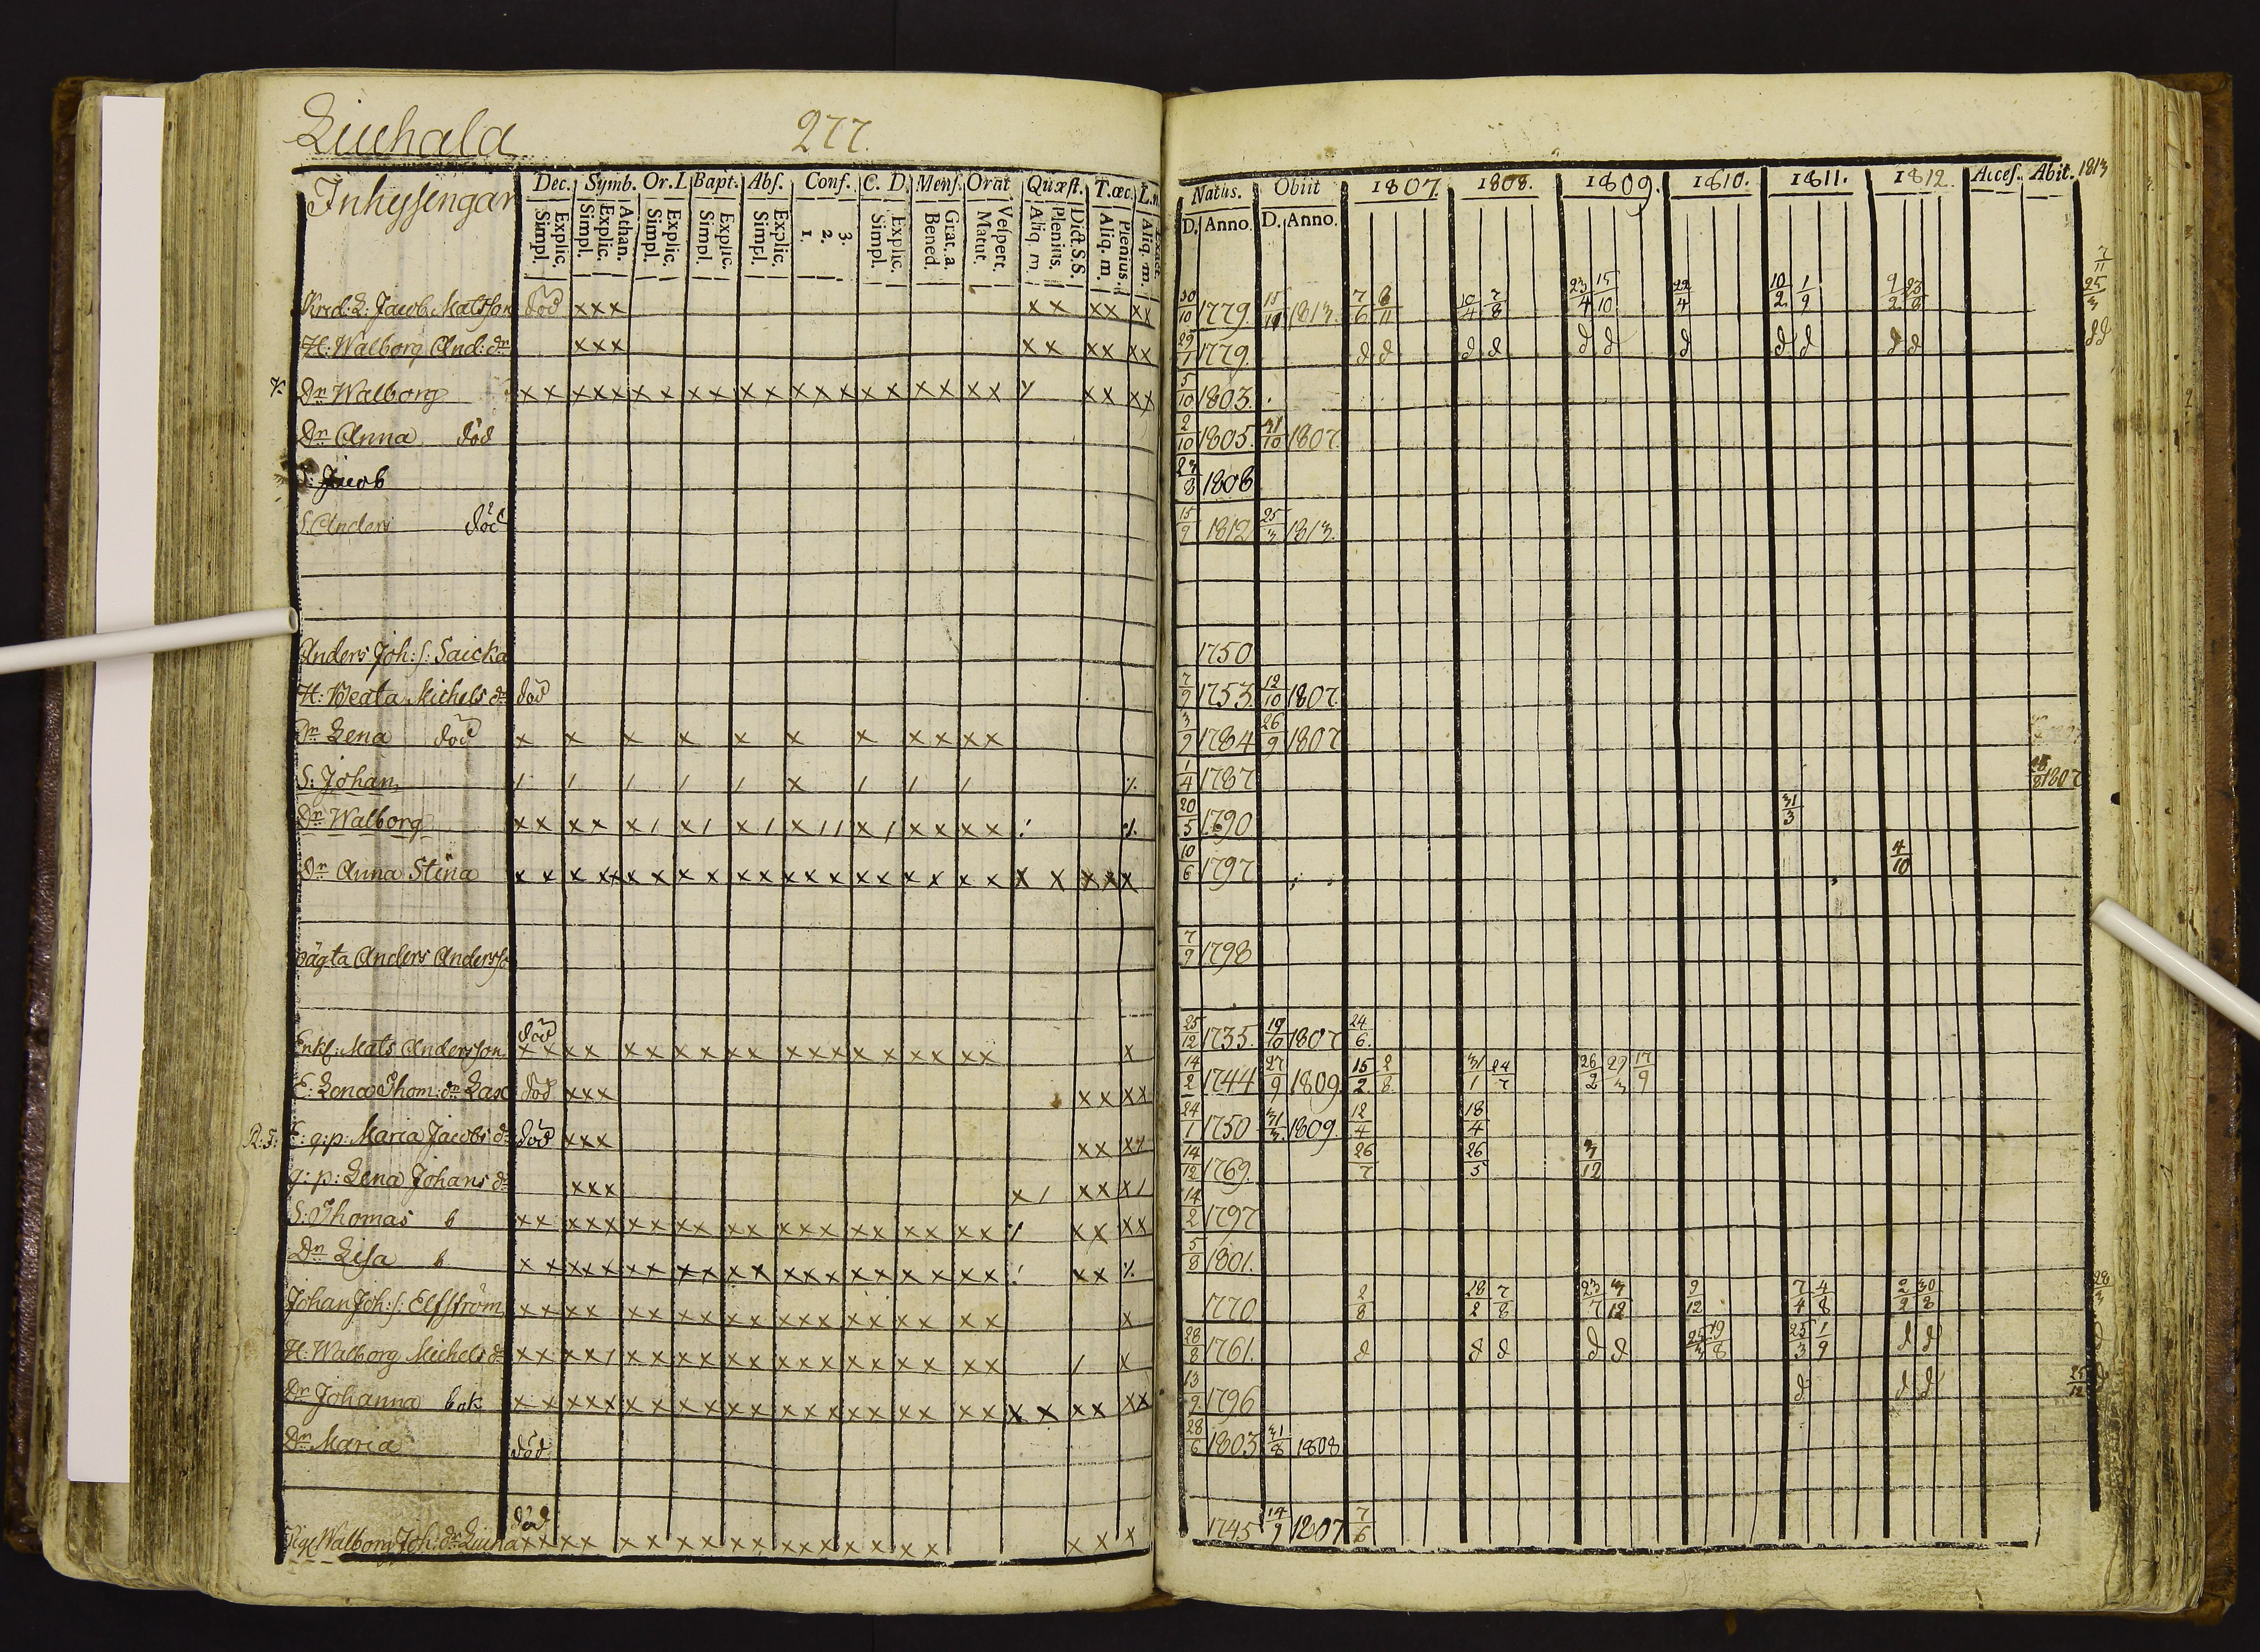 277.
Inhysengar
Dec. Symb. Or. L Bapt. Abs. Conf. C. D. Mens. Orat Quæst. T. œc. L. n
Explic. Simpl. Athan. Explic. Simpl. Explic. Simpl. Explic. Simpl. Explic. Simpl. 3. 2. 1. Explic. Simpl. Grat. a. Bened. Vespert. Matut. Dict. S.S. Plenius. Aliq. m. Plenius. Aliq. m. Exact. Aliq. m.
Natus. Obiit 1807. 1808. 1809. 1810. 1811. 1812. Acces. Abit. 1813
D. Anno. D. Anno.
Jacob Matsson död xxx xx xx xx 30/10 1779. 1813. 7/6 8/11 10/4 7/8 23/4 15/10 22/4 10/2 1/9 9/2 23/8 7/11 25/3
H: Walborg And: dr xxx xx xx xx 29/1 1779. d d d d d d d d d d d d d
Dr Walborg xx xxx xx xx xx xxx xx xx xx y xx xx 5/10 1803.
Dr Anna död 2/10 1805. 31/10 1807.
S: Jacob 23/8 1808
S. Anders död 15/9 1812 25/3 1813.
Anders Joh: s: Saicka 1750
H: Beata Michels dr död 7/9 1753. 12/10 1807.
Dr Lena död x x x x x x x xx xx 3/9 1784 26/9 1807
S: Johan / / / / / x / / / 1/4 1787 28/8 1807
Dr Walborg xx xx x/ x/ x/ x// x/ xx xx 20/5 1790 31/3
Dr Anna Stina xx xxx xx xx xx xxx xx xx xx x x xx x 10/6 1797 4/10
Anders Anders 7/9 1798
död
Enkl: Mats Andersson xx xx xx xx xx xxx xx xx xx x 25/12 1735. 19/10 1807 24/6.
E: Lena Thom: dr Lax död xxx xx xx 14/2 1744 27/9 1809. 15/2 2/8 31/1 24/7 26/2 29/3 17/9
E: q: p: Maria Jacobs dr död xxx xx xx 24/1 1750 31/3. 1809. 12/4 18/4
q: p: Lena Johans dr xxx x/ xx x/ 14/12 1769. 26/7 26/5 3/12
S: Thomas b xx xxx xx xx xx xxx xx xx xx xx xx 14/2 1797
Dr Lisa b xx xxx xx xx xx xxx xx xx xx xx 5/8 1801.
Johan Joh: s: Elfström xx xx xx xx xx xxx xx xx xx x 1770 2/8 28/2 7/8 23/7 3/12 9/12 7/4 4/8 2/2 30/8 28/3
H: Walborg Michels dr xx xx/ xx xx xx xxx xx xx xx / x 28/8 1761. d d d d d 25/3 19/8 25/3 1/9 d d d
Dr Johanna xx xxx xx xx xx xxx xx xx xx x x xx xx 13/9 1796 d d d 25/12 d
Dr Maria död 28/6 1803 31/8 1808
död
Walborg Joh: dr xx xx xx xx xx xxx xx xx x x x 1745 14/9 1807 7/6